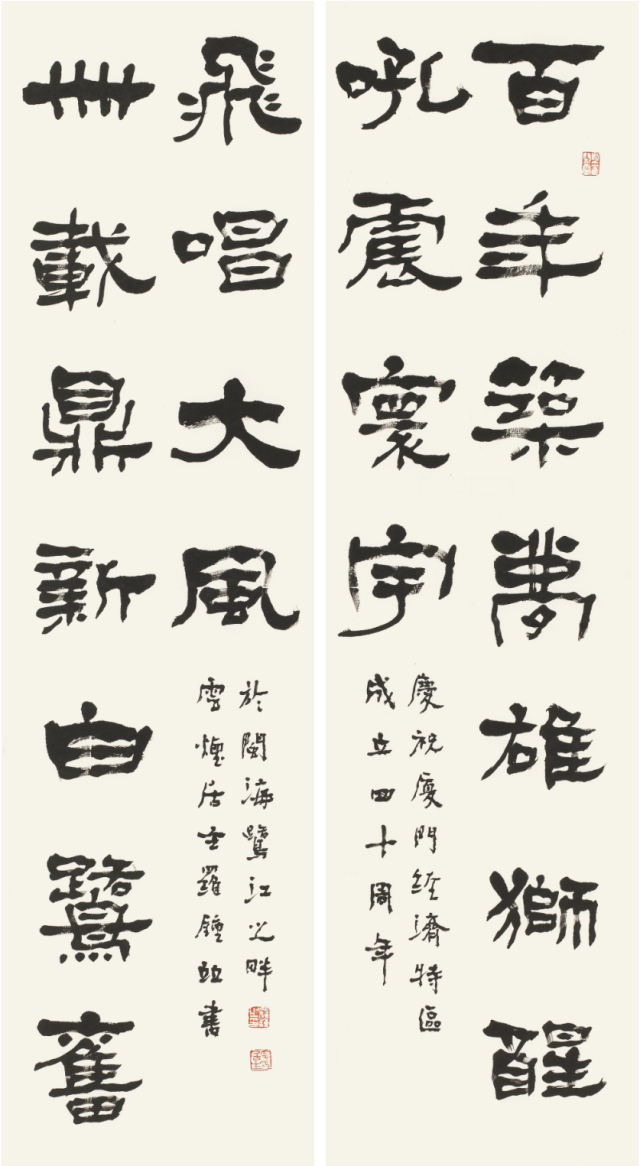 百年築夢雄獅醒
吼震寰宇
慶祝廈門經濟特區
成立四十周年
卌載鼎新白鷺奮
飛唱大風
於閩海鷺江之畔
雲居士羅鍾書